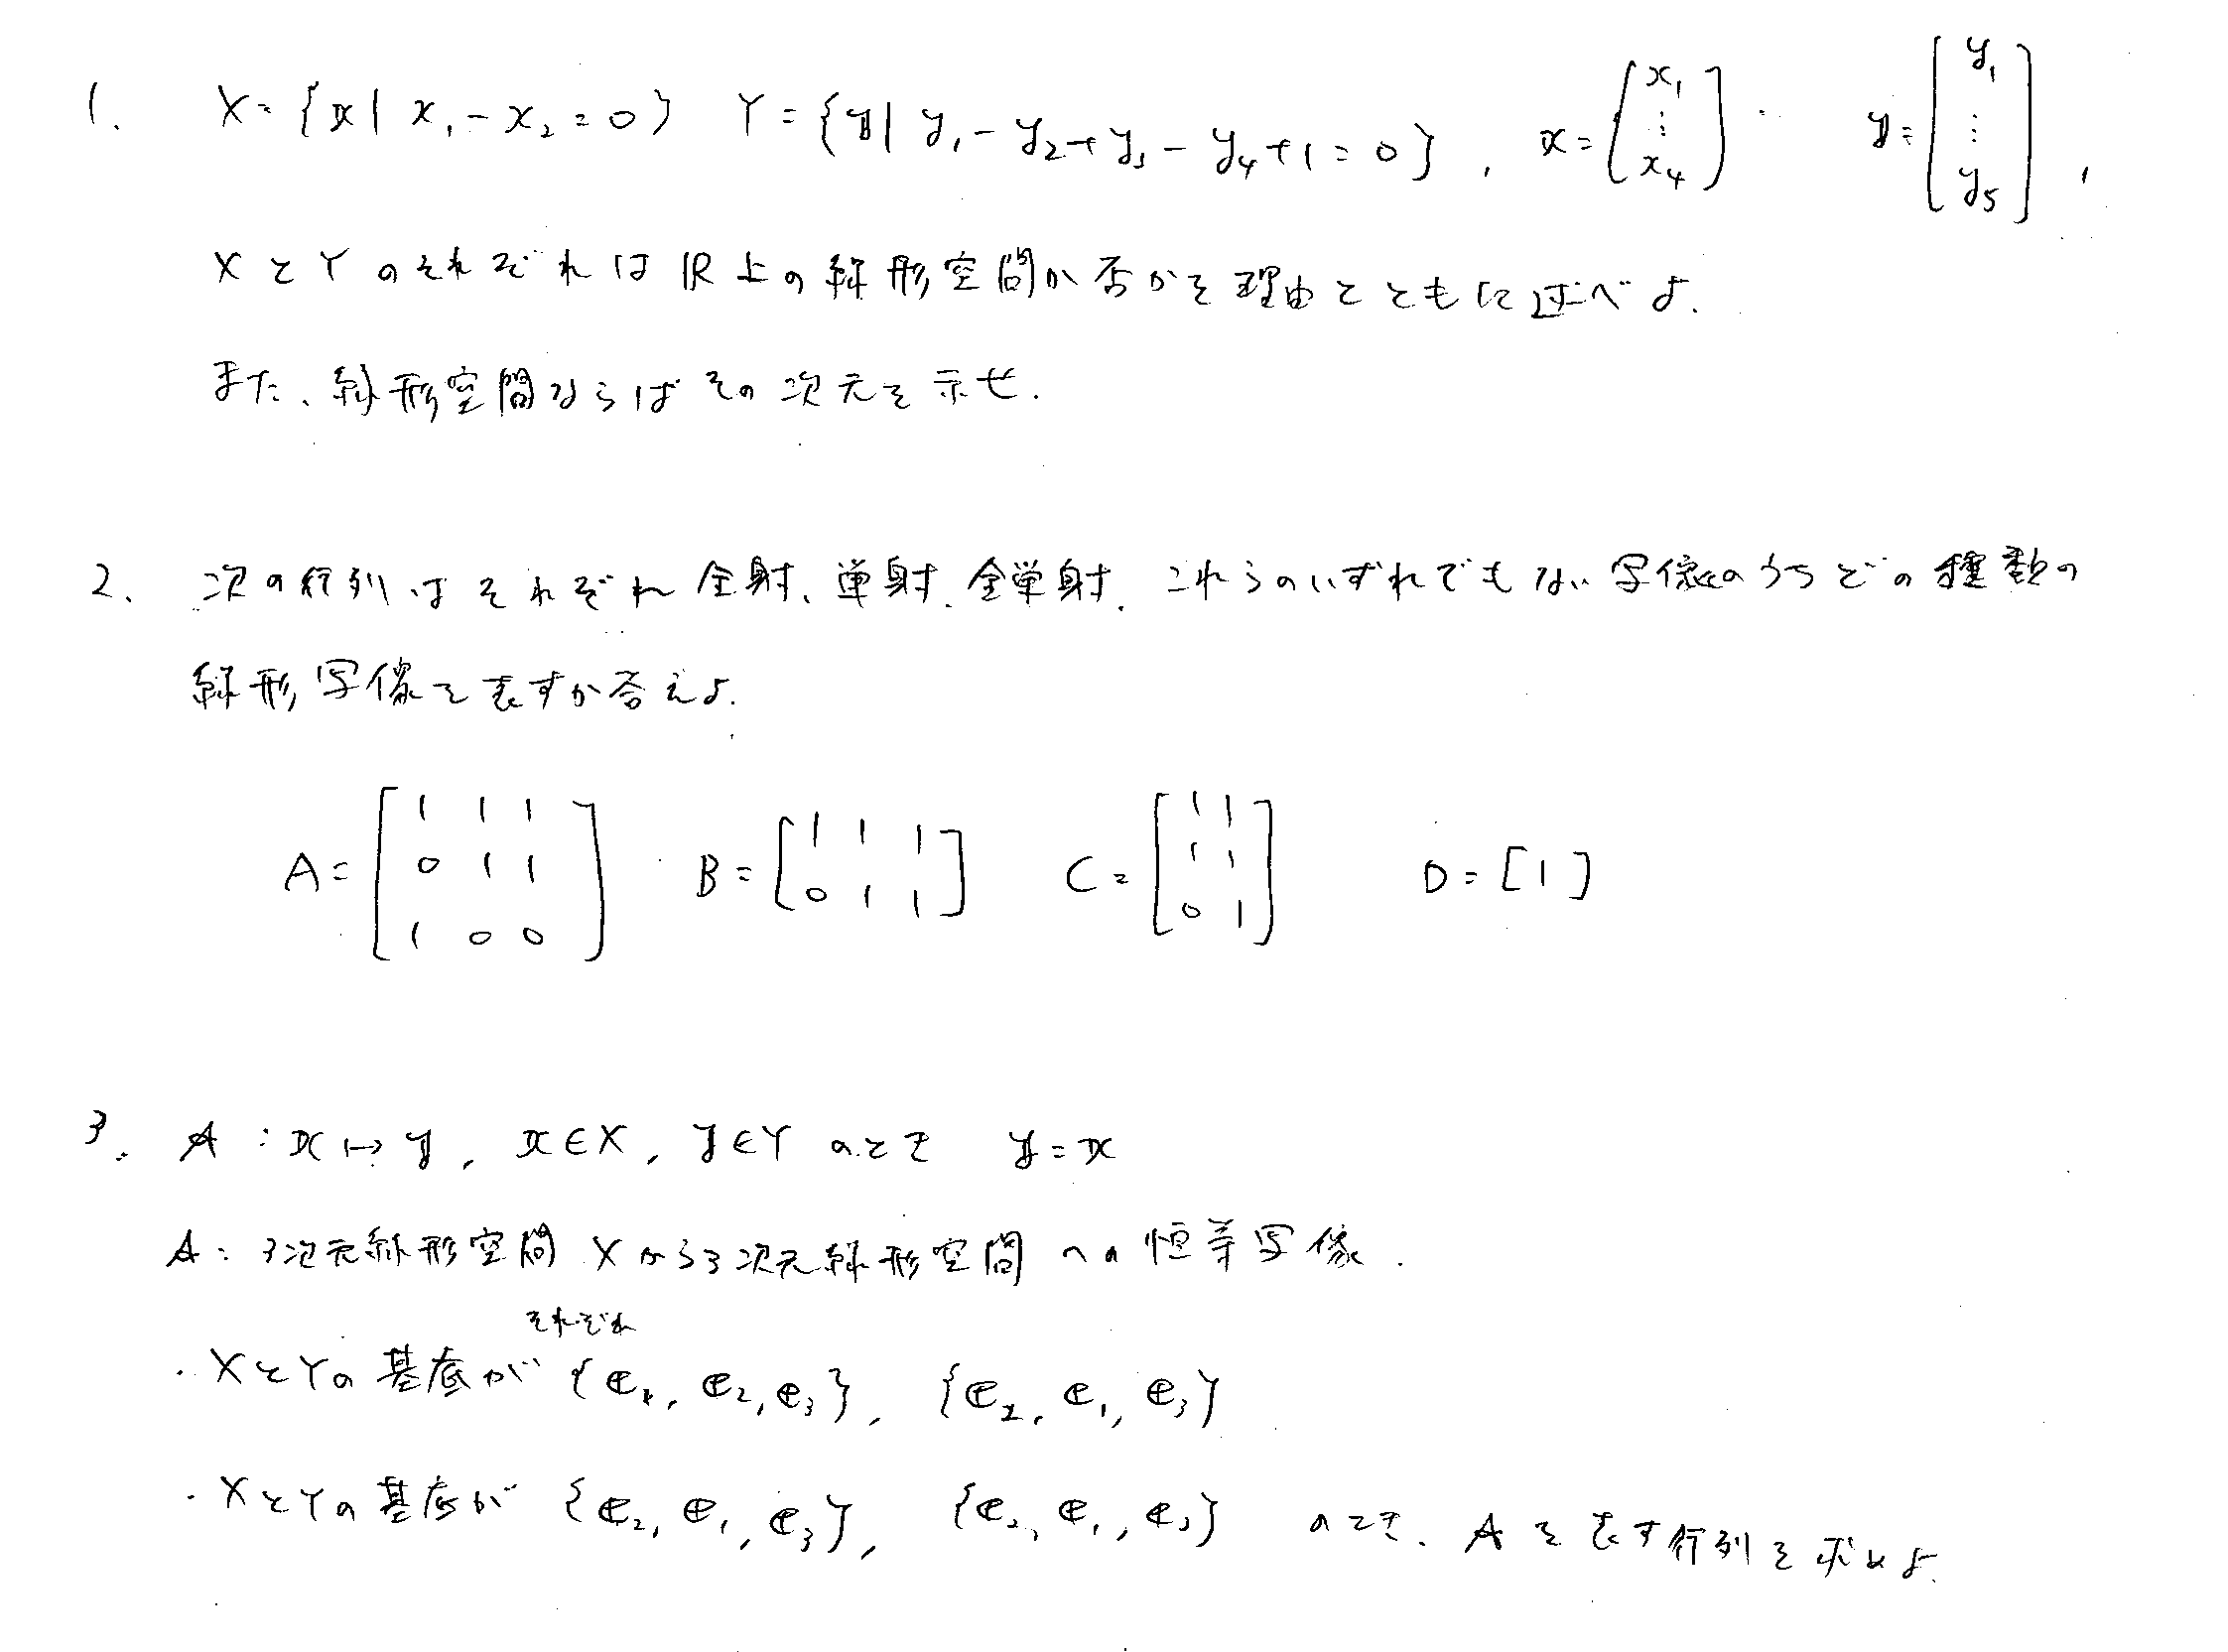 1. X = {x | x₁ - x₂ = 0} Y = {y | y₁ - y₂ + y₃ - y₄ + 1 = 0}, x = [x₁ ⋮ x₄] y = [y₁ ⋮ y₅],
XとYのそれぞれはℝ上の線形空間か否かを理由とともに述べよ.
また、線形空間ならばその次元を示せ.
2. 次の行列はそれぞれ全射、単射、全単射、これらのいずれでもない写像のうちどの種類の
線形写像を表すか答えよ.
A = [1 1 1; 0 1 1; 1 0 0] B = [1 1 1; 0 1 1] C = [1 1; 1 1; 0 1] D = [1]
3. A : x ↦ y, x ∈ X, y ∈ Y のとき y = x
A : 3次元線形空間 X から3次元線形空間 への恒等写像.
・XとYの基底がそれぞれ {e₁, e₂, e₃}, {e₂, e₁, e₃}
・XとYの基底が {e₂, e₁, e₃}, {e₂, e₁, e₃} のとき、A を表す行列を求めよ.